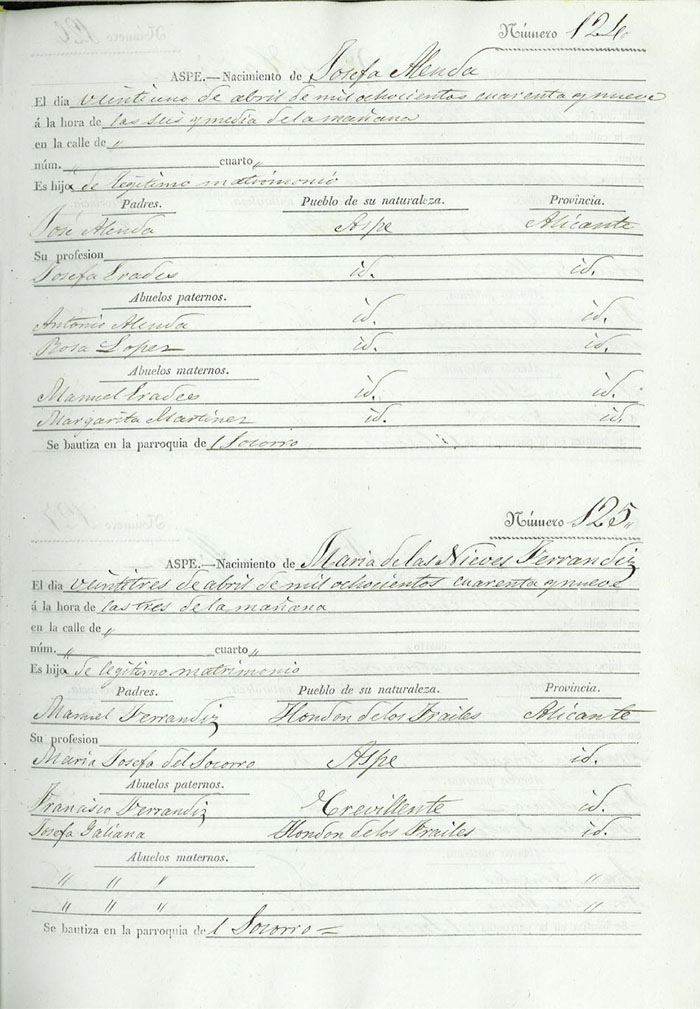 Número 124
ASPE.—Nacimiento de Josefa Alenda
El dia veintiuno de abril de mil ochocientos cuarenta y nueve
á la hora de las seis y media de la mañana
en la calle de „
núm. „ cuarto „
Es hija de legitimo matrimonio
Padres. Pueblo de su naturaleza. Provincia.
José Alenda Aspe Alicante
Su profesion
Josefa Erades id. id.
Abuelos paternos.
Antonio Alenda id. id.
Rosa Lopez id. id.
Abuelos maternos.
Manuel Erades id. id.
Margarita Martinez id. id.
Se bautiza en la parroquia de l Socorro
Número 125„
ASPE.—Nacimiento de Maria de las Nieves Ferrandiz
El dia veintitres de abril de mil ochocientos cuarenta y nueve
á la hora de las tres de la mañana
en la calle de „
núm. „ cuarto „
Es hija de legitimo matrimonio
Padres. Pueblo de su naturaleza. Provincia.
Manuel Ferrandiz Hondon de los Frailes Alicante
Su profesion
Maria Josefa del Socorro Aspe id.
Abuelos paternos.
Francisco Ferrandiz Crevillente id.
Josefa Galiana Hondon de los Frailes id.
Abuelos maternos.
„ „ „ „
„ „ „ „
Se bautiza en la parroquia de l Socorro =